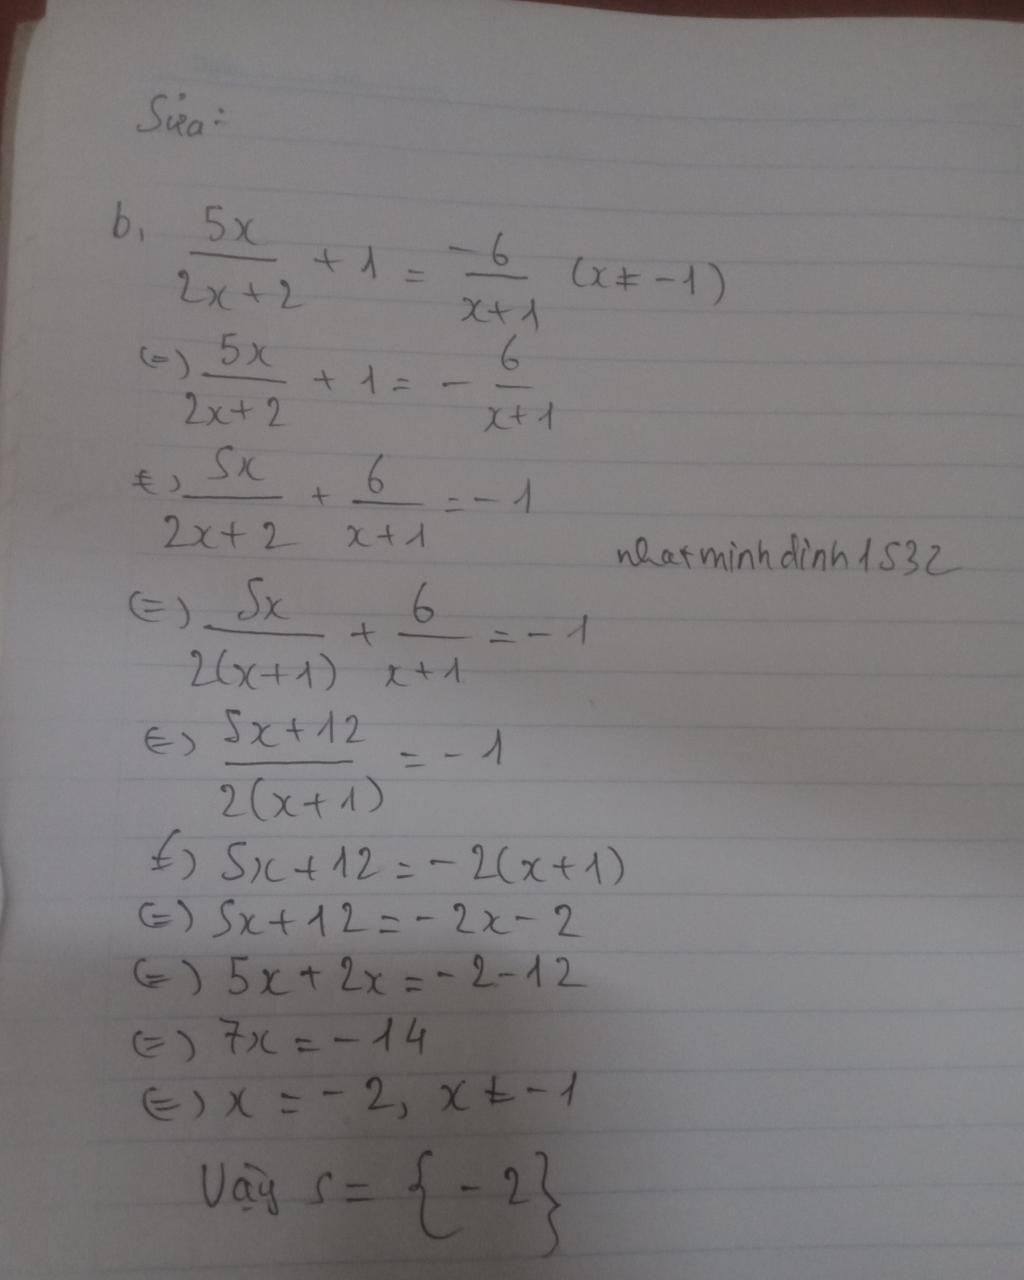 Sửa:
b, 5x/(2x+2) + 1 = -6/(x+1) (x ≠ -1)
(=) 5x/(2x+2) + 1 = - 6/(x+1)
(=) 5x/(2x+2) + 6/(x+1) = -1
nhatminhdinh1532
(=) 5x/(2(x+1)) + 6/(x+1) = -1
(=) (5x+12)/(2(x+1)) = -1
(=) 5x+12 = -2(x+1)
(=) 5x+12 = -2x-2
(=) 5x+2x = -2-12
(=) 7x = -14
(=) x = -2, x ≠ -1
Vậy S = {-2}